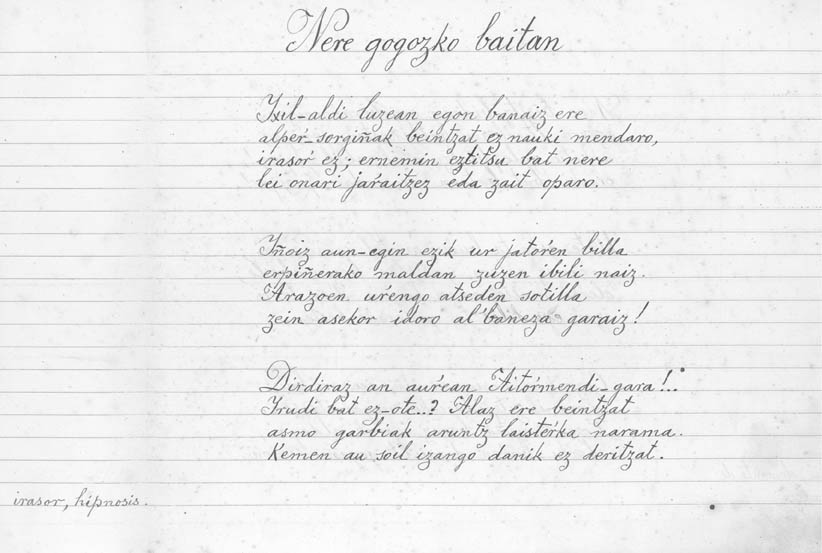 Nere gogozko baitan
Ixil-aldi luzean egon banaiz ere
alpeŕ-sorgiñak beintzat ez nauki mendaro,
irasoŕ ez; ernemin eztitsu bat nere
lei onari jaŕaitzez eda zait oparo.
Iñoiz aun-egin ezik ur jatoŕen billa
erpiñerako maldan zuzen ibili naiz.
Arazoen uŕengo atseden sotilla
zein asekor idoro al'baneza garaiz!
Dirdiraz an auŕean Aitoŕmendi-gara!..
Irudi bat ez-ote..? Alaz ere beintzat
asmo garbiak aruntz laisteŕka narama.
Kemen au soil izango danik ez deritzat.
irasor, hipnosis.